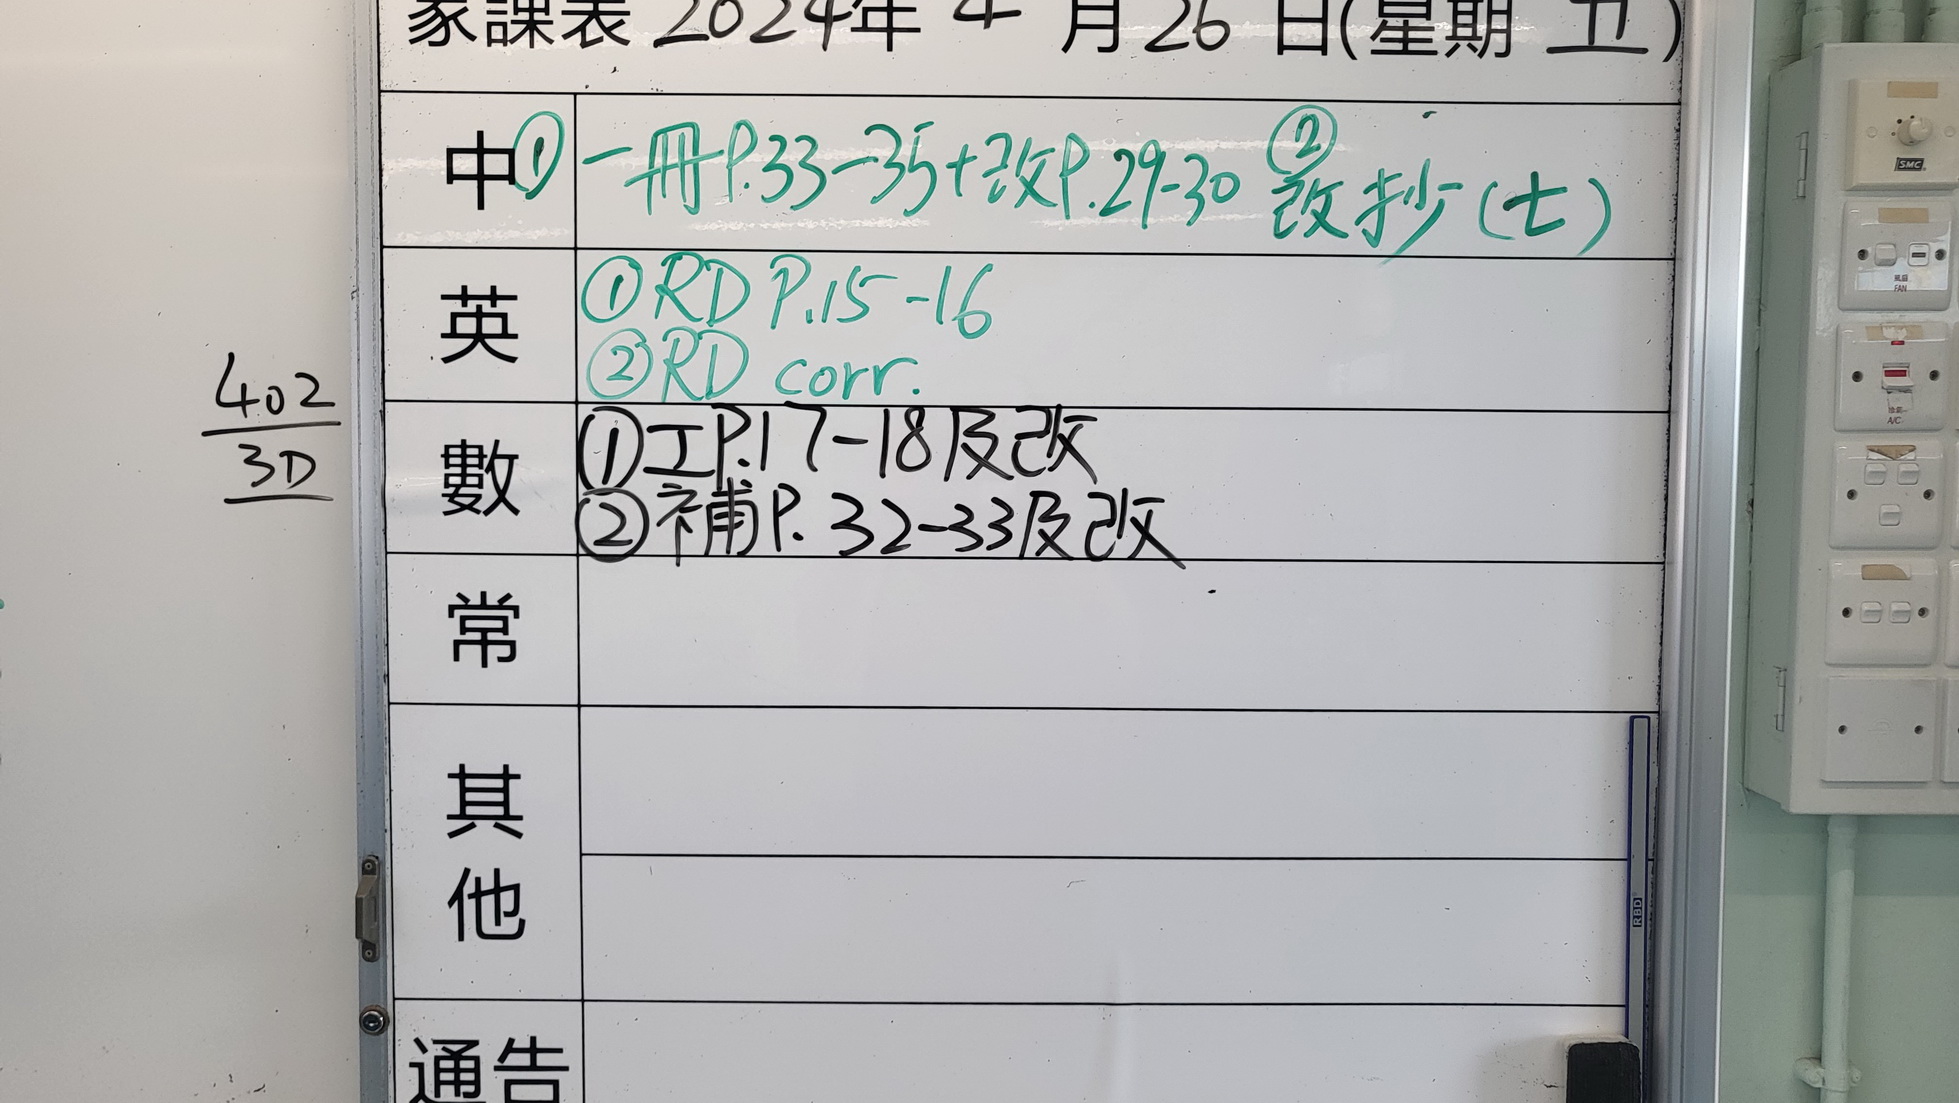 家課表 2024年 4 月 26 日(星期 五)
中 ① 一冊P.33-35+改P.29-30 ② 改抄(七)
英 ①RD P.15-16
②RD corr.
數 ①工P.17-18及改
②補P.32-33及改
常
其他
通告
402
3D
SMC
風扇
FAN
A/C
RBD